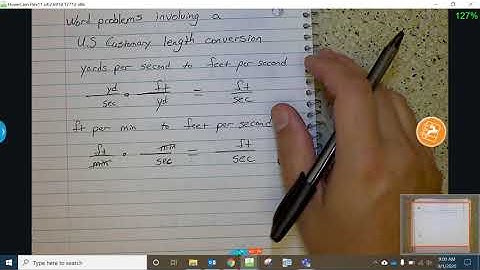 Word problems involving a
U.S Customary length conversion
yards per second to feet per second
yd/sec · ft/yd = ft/sec
ft per min to feet per second
ft/min · min/sec = ft/sec
127%
Type here to search
9:00 AM